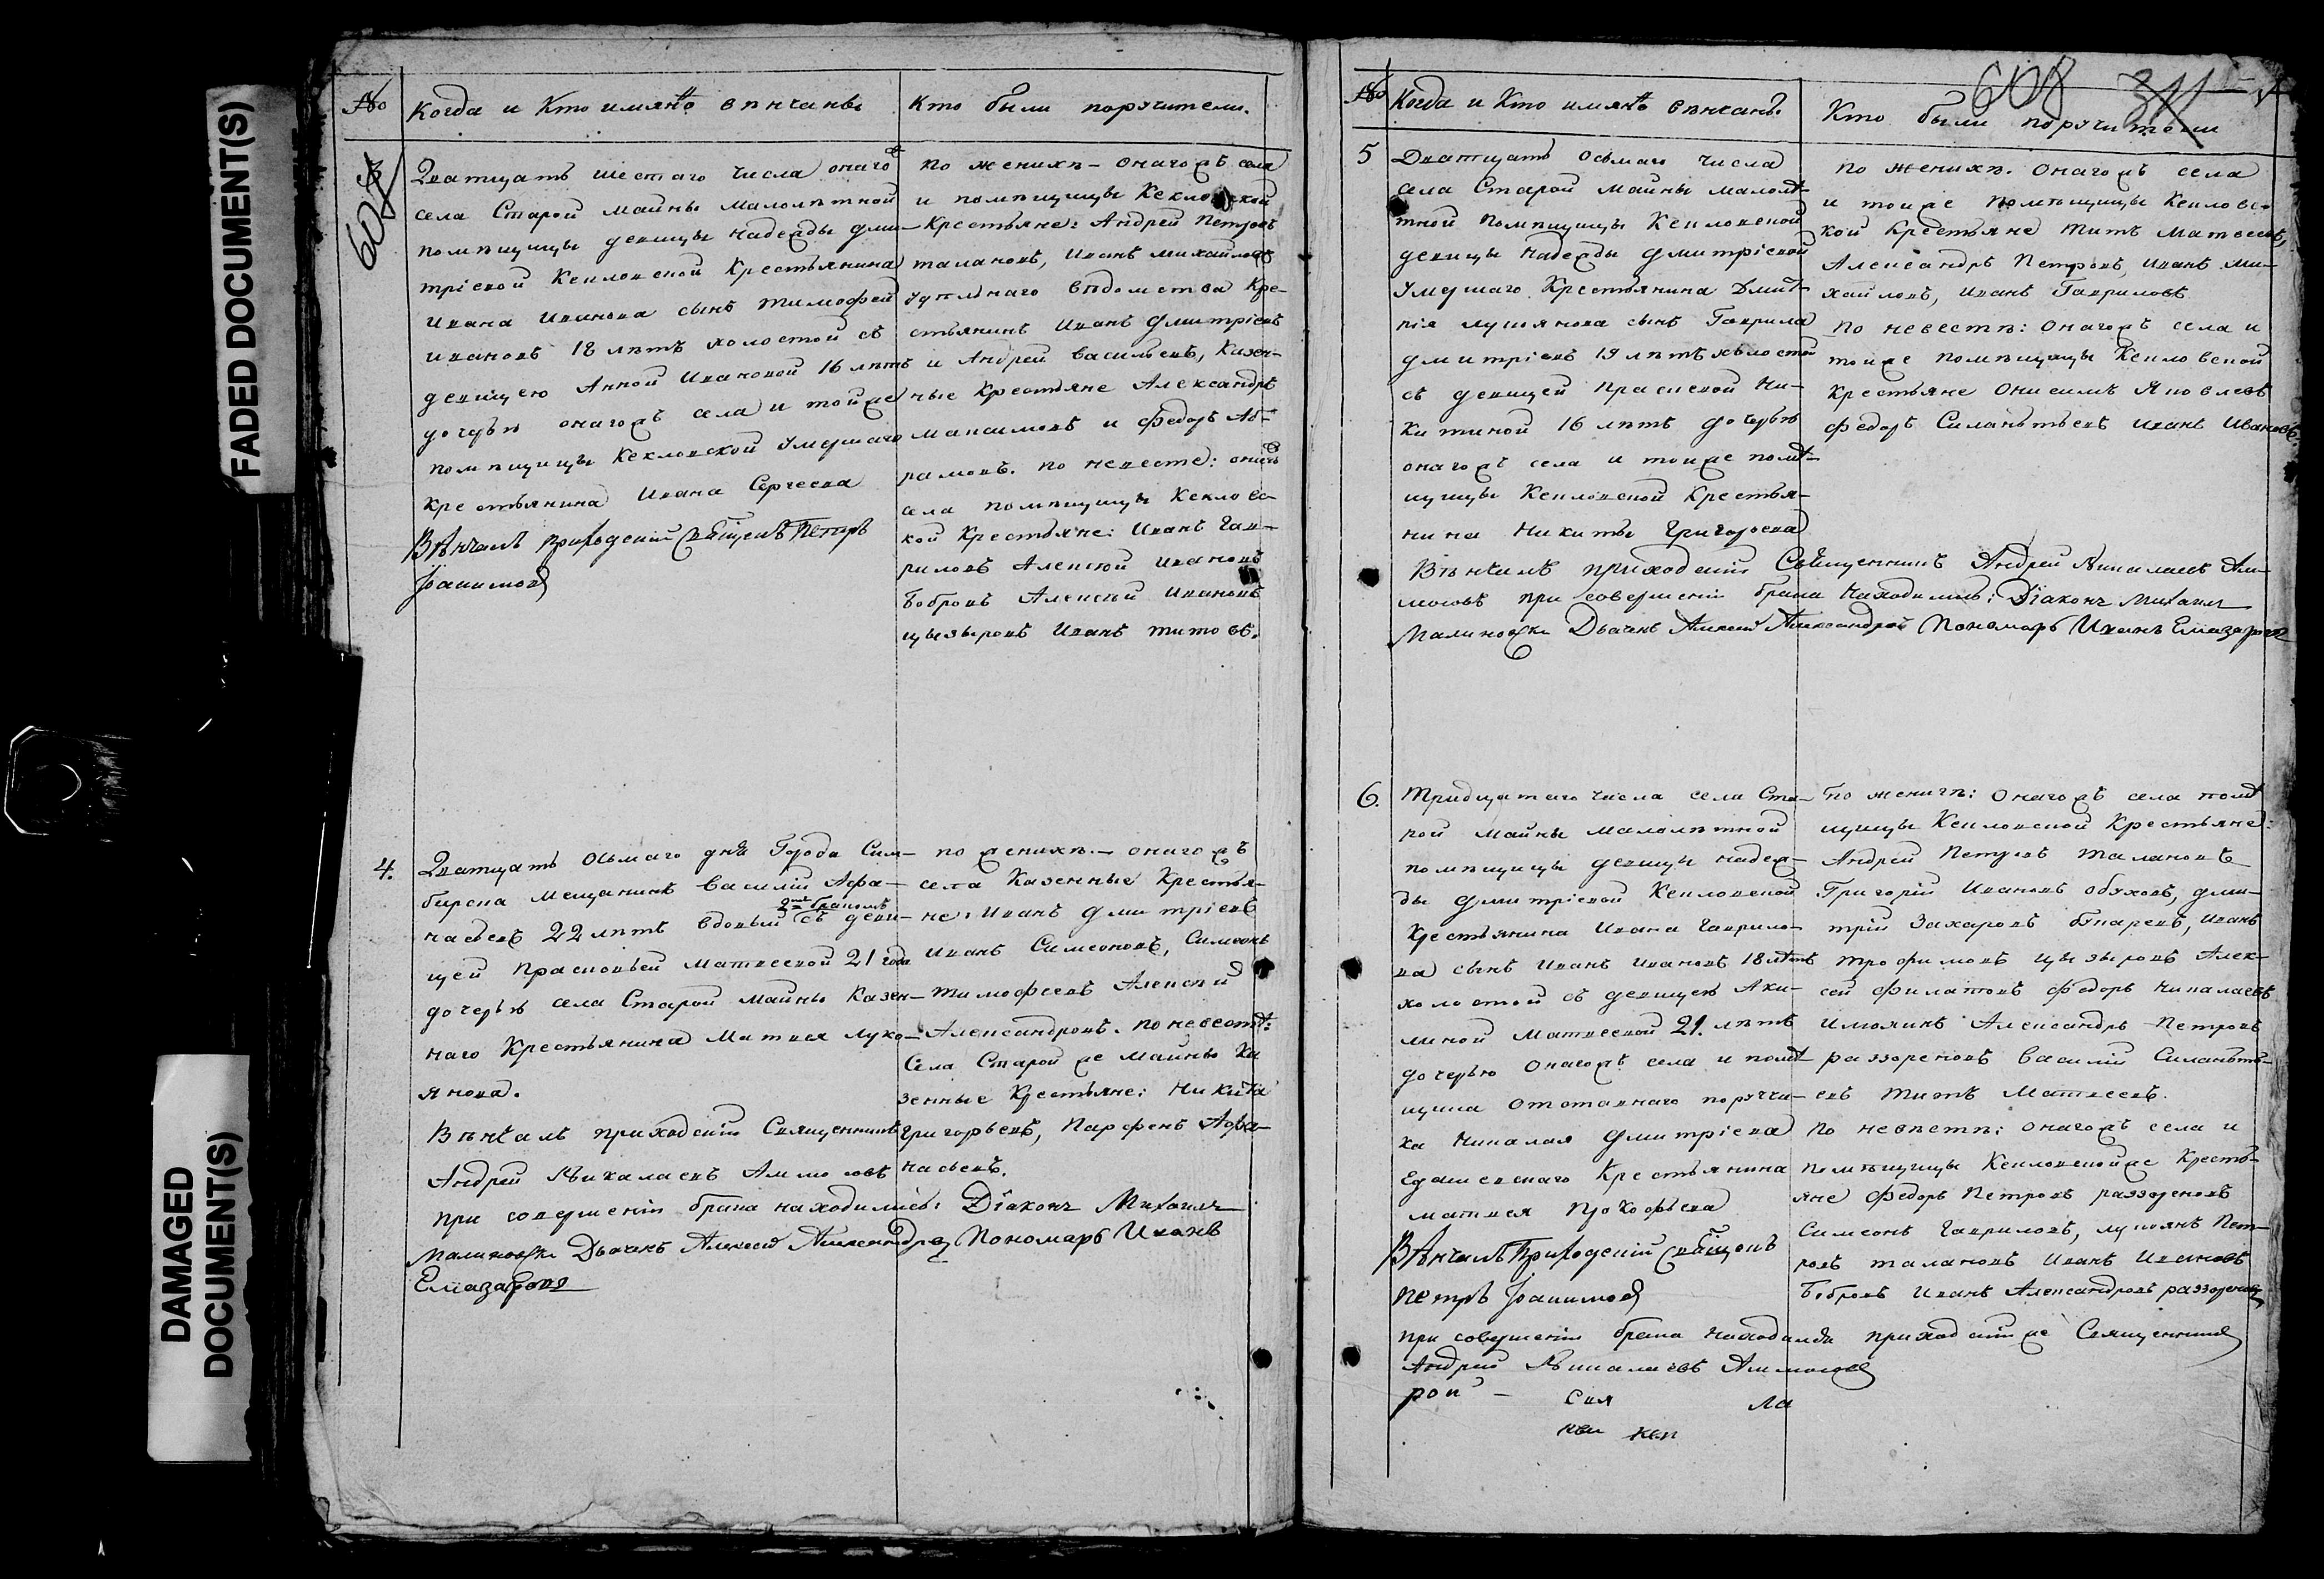 FADED DOCUMENT(S)
DAMAGED
DOCUMENT(S)
№
Когда и Кто имянно вѣнчаны
Кто были поручители.
608
3
Дватцать шестаго числа онаго
села Старой майны малолѣтной
помѣщицы девицы надежды дми-
тріевой Кекловской Крестьянина
Ивана Иванова сынъ тимофей
Ивановъ 18 лѣтъ холостой съ
девицею Анной Ивановой 16 лѣтъ
дочерью онагожъ села и тойже
помѣщицы Кекловской умершаго
Крестьянина Ивана Сергеева
Вѣнчалъ приходскій Священ Петръ
по женихѣ - онагожъ села
и помѣщицы Кекловской
Крестьяне: Андрей Петровъ
талановъ, Иванъ михайловъ
удѣльнаго вѣдомства Кре-
стьянинъ Иванъ дмитріевъ
и Андрей васильевъ, Казен-
ные Крестьяне Александръ
максимовъ и Федоръ Аб-
рамовъ. по невесте:
села помѣщицы Кекловс-
кой Крестьяне: Иванъ Гав-
риловъ Алексей Ивановъ
Бобровъ Алексей Ивановъ
цызыровъ Иванъ титовъ.
4.
Дватцать осьмаго дня Города Сим-
бирска мещанинъ василій Афа-
2мъ бракомъ
насьевъ 22 лѣтъ вдовый съ деви-
цей Прасковьей матвеевой 21 года
дочерью села Старой майны Казен-
наго Крестьянина Матвея луко-
янова.
Вѣнчалъ приходскій Священникъ
Андрей Николаевъ
при совершеніи брака находились: Діаконъ Михаилъ
Малиновскій Дьячекъ Алексей Александровъ Пономарь Иванъ
Елиазаровъ
по женихѣ. - онагожъ
села Казенные Крестья-
не: Иванъ дмитріевъ
Иванъ Симеоновъ, Симеонъ
тимофеевъ Алексей
Александровъ. по невестѣ:
Села Старой же майны Ка
зенные Крестьяне: Никита
Григорьевъ, Парфенъ Афа-
насьевъ.
№
Когда и Кто имянно вѣнчанъ.
608 311
Кто были поручители
5
Дватцать осьмаго числа
села Старой майны малолѣ-
тной помѣщицы Кекловской
девицы надежды дмитріевой
умершаго Крестьянина Дмит-
рія лукоянова сынъ Гаврила
дмитріевъ 19 лѣтъ холостой
съ девицей прасковей Ни-
китиной 16 лѣтъ дочерью
онагожъ села и тойже помѣ-
щицы Кекловской Крестья-
нина Никиты Григорьева
Вѣнчалъ приходскій Священникъ Андрей Николаевъ
при совершеніи брака находились: Діаконъ Михаилъ
Малиновскій Дьячекъ Алексей Александровъ Пономарь Иванъ Елиазаровъ
по женихѣ. онагожъ села
и тойже помѣщицы Кекловс-
кой Крестьяне титъ Матвеевъ,
Александръ Петровъ, Иванъ ми-
хайловъ, Иванъ Гавриловъ
по невестѣ: онагожъ села и
тойже помѣщицы Кекловской
Крестьяне Онисимъ Яковлевъ
Федоръ Силантьевъ Иванъ Ивановъ.
6.
Тридцатаго числа села Ста-
рой майны малолѣтной
помѣщицы девицы надеж-
ды дмитріевой Кекловской
Крестьянина Ивана Гаврило-
ва сынъ Иванъ Ивановъ 18 лѣтъ
холостой съ девицею Аки-
линой Матвеевой 21. лѣтъ
дочерью онагожъ села и помѣ-
щика отставнаго поручи-
ка николая дмитріева
Крестьянина
матвея прокофьева
Вѣнчалъ Приходскій Священ
Петръ
при совершеніи брака находился приходскій же Священникъ
Андрей Николаевъ
рои -
ла
по женихѣ: онагожъ села помѣ
щицы Кекловской Крестьяне:
Андрей Петровъ талановъ
Григорій Ивановъ обуховъ, дми-
трій Захаровъ бѣкаревъ, Иванъ
трофимовъ цызыровъ Алек-
сей Филатовъ Федоръ николаевъ
Александръ Петровъ
раззореновъ василій Силантьевъ
титъ Матвеевъ.
по невестѣ: онагожъ села и
помѣщицы Кекловскойже Кресть-
яне Федоръ Петровъ раззореновъ
Симеонъ Гавриловъ, лукоянъ Пет-
ровъ талановъ Иванъ Ивановъ
Бобровъ Иванъ Александровъ раззореновъ